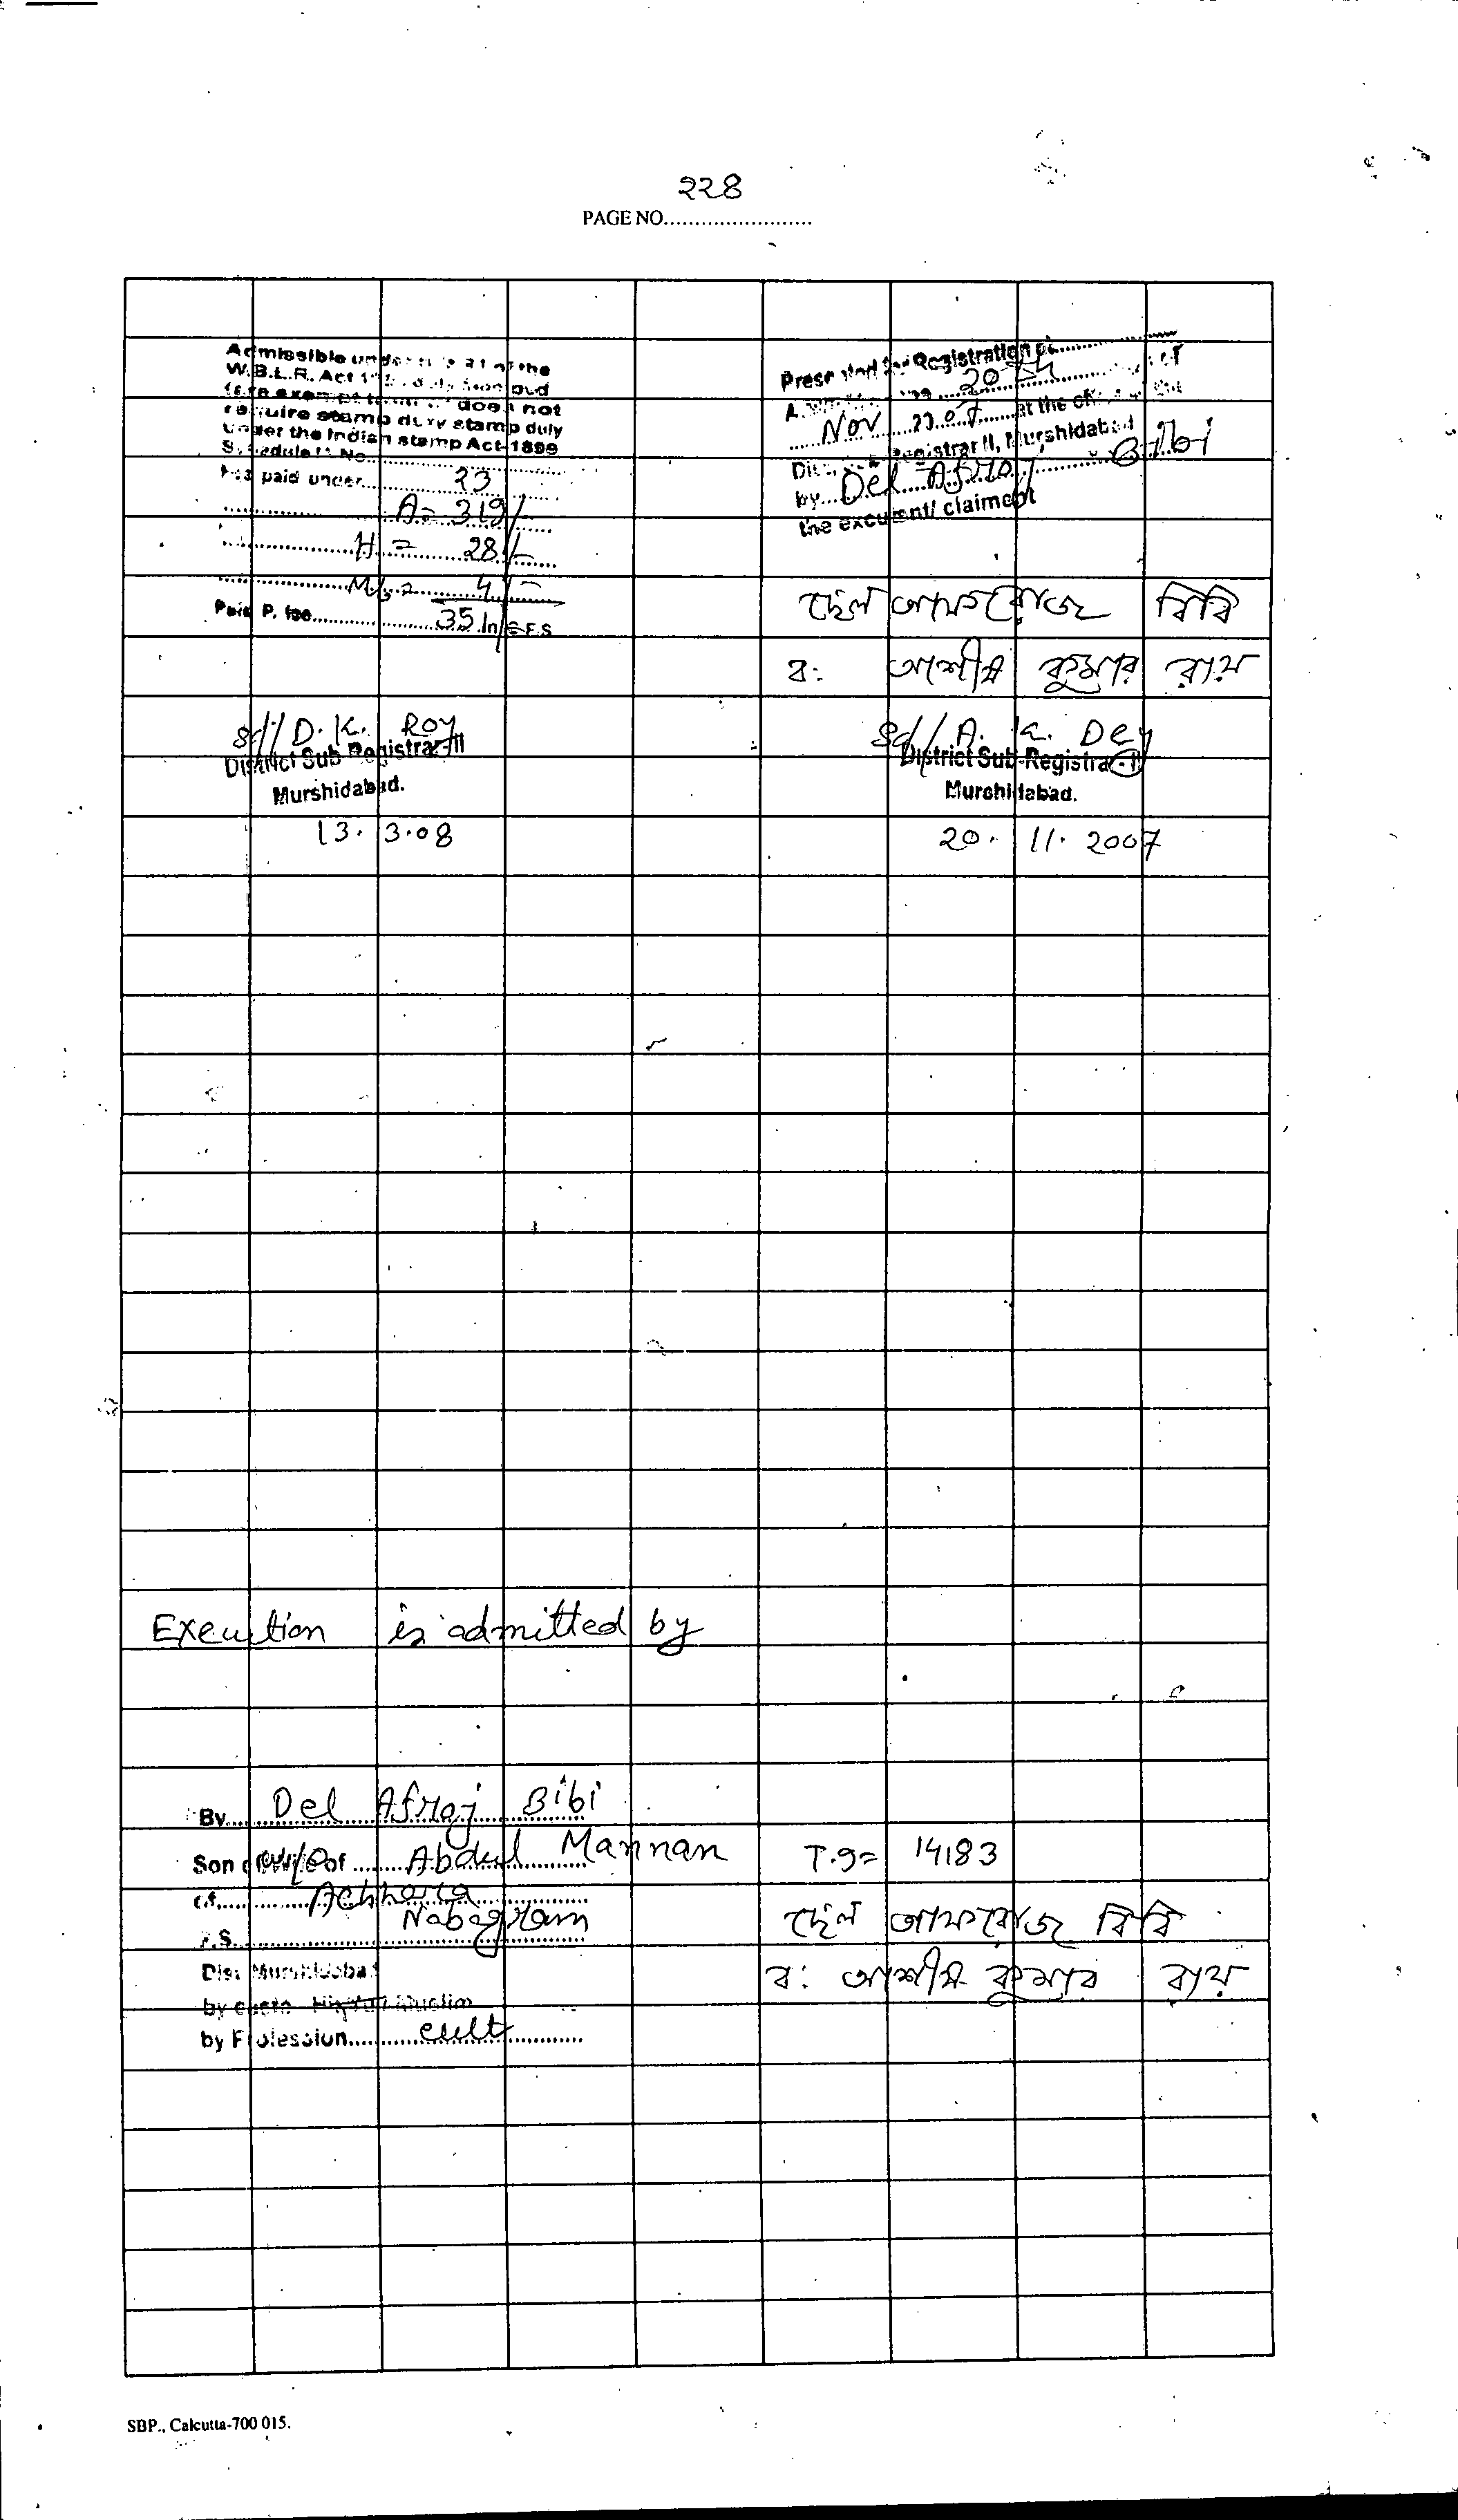 228
PAGE NO
Admissible under 21 of the
W.B.L.R. Act
exempt does not
require stamp duty stamp duly
under the Indian stamp Act 1899
Schedule No
Fees paid under 23
A = 319/-
H = 28/-
4/-
Paid P. fee 351/-
Sd// D. K. Roy
District Sub Registrar-II
Murshidabad.
13. 3.08
Presented for Registration at
20
Nov at the
Registrar II, Murshidabad
by Del Afroj Bibi
the executent/ claiment
দেল আফরোজ বিবি
ব: আশীষ কুমার রায়
Sd// A. K. Dey
District Sub-Registrar-II
Murshidabad.
20. 11. 2007
Execution is admitted by
By Del Afroj Bibi
Son of Abdul Mannan
of Achhara
P.S. Nabagram
Dist Murshidabad
by caste Hindu/ Muslim
by Profession cult
T.g= 14183
দেল আফরোজ বিবি
ব: আশীষ কুমার রায়
SBP., Calcutta-700 015.